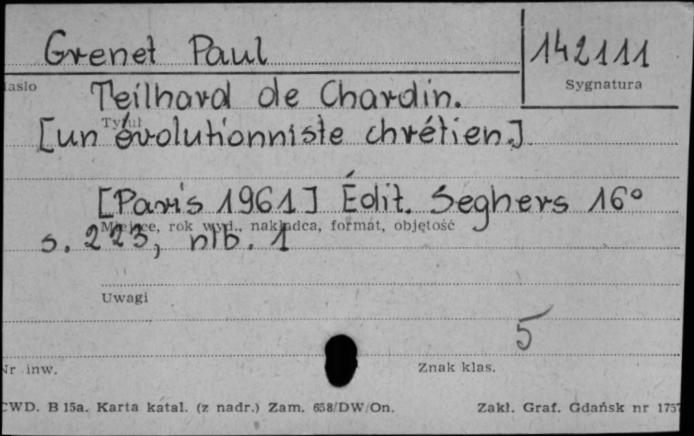 Grenet Paul
142111
Sygnatura
Teilhard de Chardin.
Tytuł
[un évolutionniste chrétien.]
[Paris 1961] Édit. Seghers 16°
Miejsce, rok wyd., nakładca, format, objętość
s. 223, nlb. 1
Uwagi
5
Nr inw.
Znak klas.
CWD. B 15a. Karta katal. (z nadr.) Zam. 658/DW/On.
Zakł. Graf. Gdańsk nr 1757